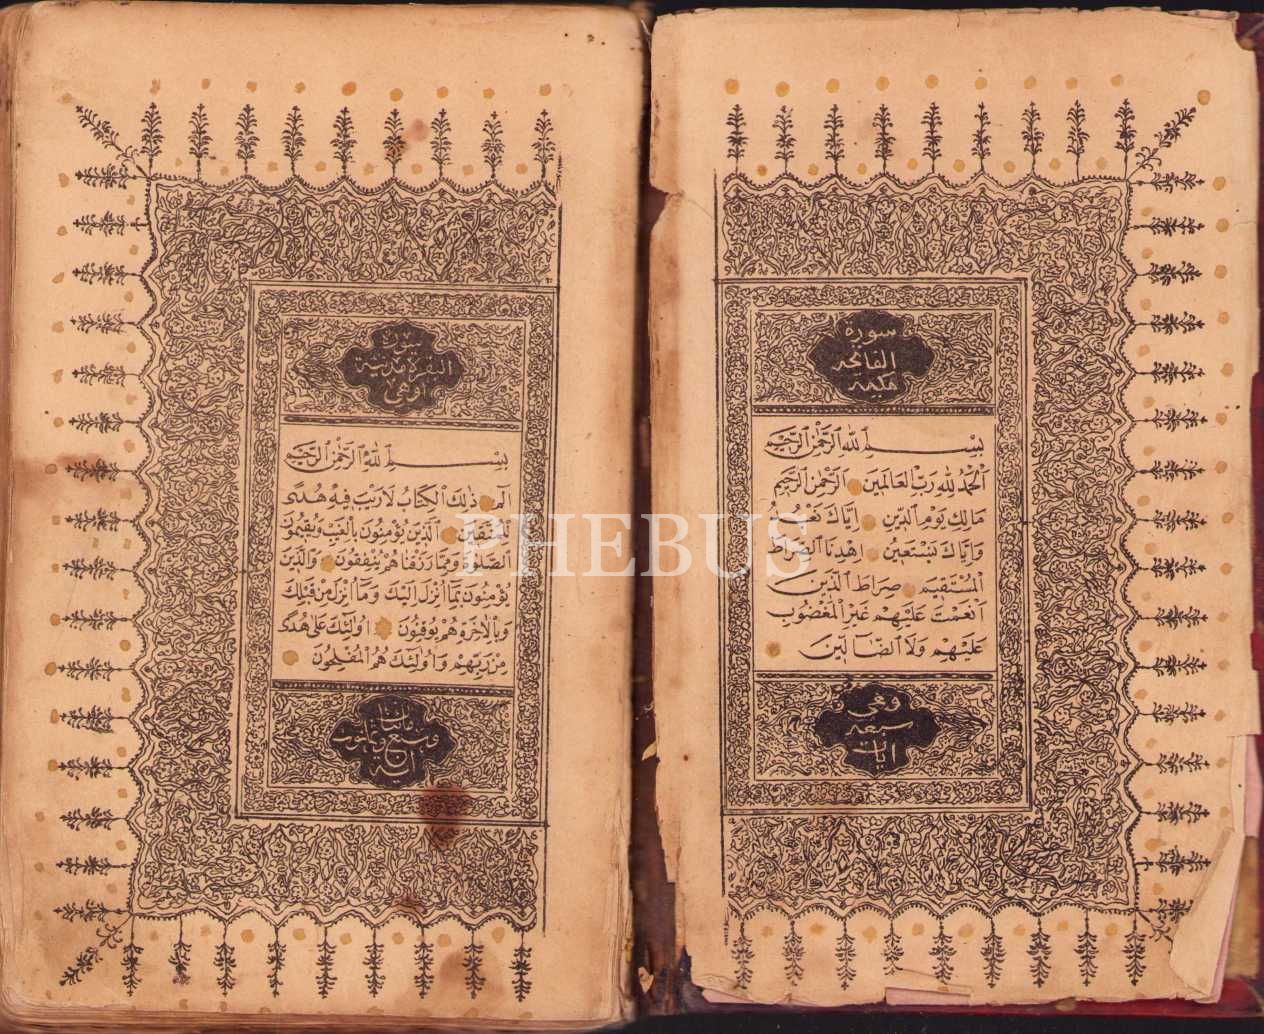 سورة
الفاتحة
مكية
بِسْمِ اللهِ الرَّحْمٰنِ الرَّحِيمِ
اَلْحَمْدُ لِلّٰهِ رَبِّ الْعَالَمِينَ الرَّحْمٰنِ الرَّحِيمِ
مَالِكِ يَوْمِ الدِّينِ اِيَّاكَ نَعْبُدُ
وَاِيَّاكَ نَسْتَعِينُ اِهْدِنَا الصِّرَاطَ
الْمُسْتَقِيمَ صِرَاطَ الَّذِينَ
اَنْعَمْتَ عَلَيْهِمْ غَيْرِ الْمَغْضُوبِ
عَلَيْهِمْ وَلَا الضَّالِّينَ
وهي
سبعة
ايات
سورة
البقرة مدنية
وهي
بِسْمِ اللهِ الرَّحْمٰنِ الرَّحِيمِ
الٓمٓ ذٰلِكَ الْكِتَابُ لَا رَيْبَ فِيهِ هُدًى
لِلْمُتَّقِينَ اَلَّذِينَ يُؤْمِنُونَ بِالْغَيْبِ وَيُقِيمُونَ
الصَّلٰوةَ وَمِمَّا رَزَقْنَاهُمْ يُنْفِقُونَ وَالَّذِينَ
يُؤْمِنُونَ بِمَا اُنْزِلَ اِلَيْكَ وَمَا اُنْزِلَ مِنْ قَبْلِكَ
وَبِالْاٰخِرَةِ هُمْ يُوقِنُونَ اُولٰئِكَ عَلٰى هُدًى
مِنْ رَبِّهِمْ وَاُولٰئِكَ هُمُ الْمُفْلِحُونَ
مائتان
وسبع وثمانون
اية
PHEBUS